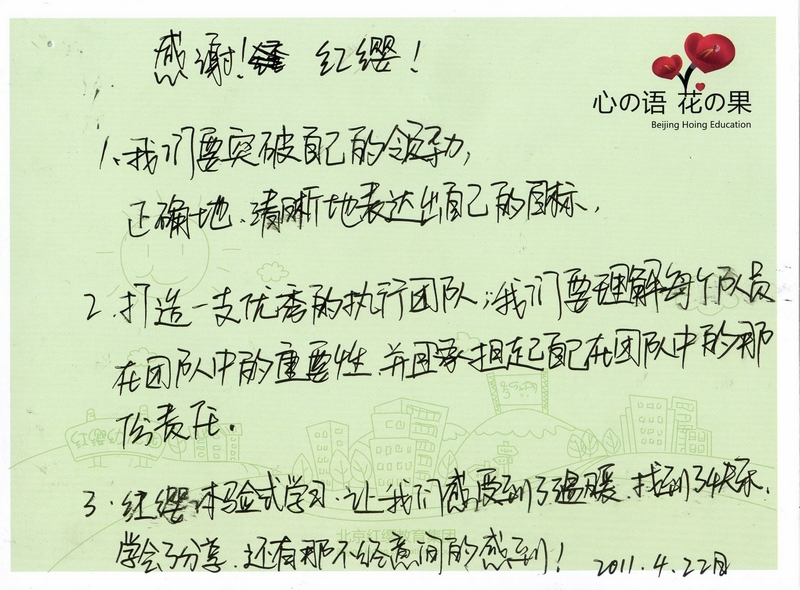 感谢! 红缨!
心の语 花の果
Beijing Hoing Education
1、我们要突破自己的领导力,
正确地、清晰地表达出自己的目标,
2、打造一支优秀的执行团队;我们要理解每个队员
在团队中的重要性,并且承担起自己在团队中的那
份责任。
3、红缨体验式学习,让我们感受到了温暖,找到了快乐,
学会了分享,还有那不经意间的感到!
北京红缨教育集团
2011.4.22日